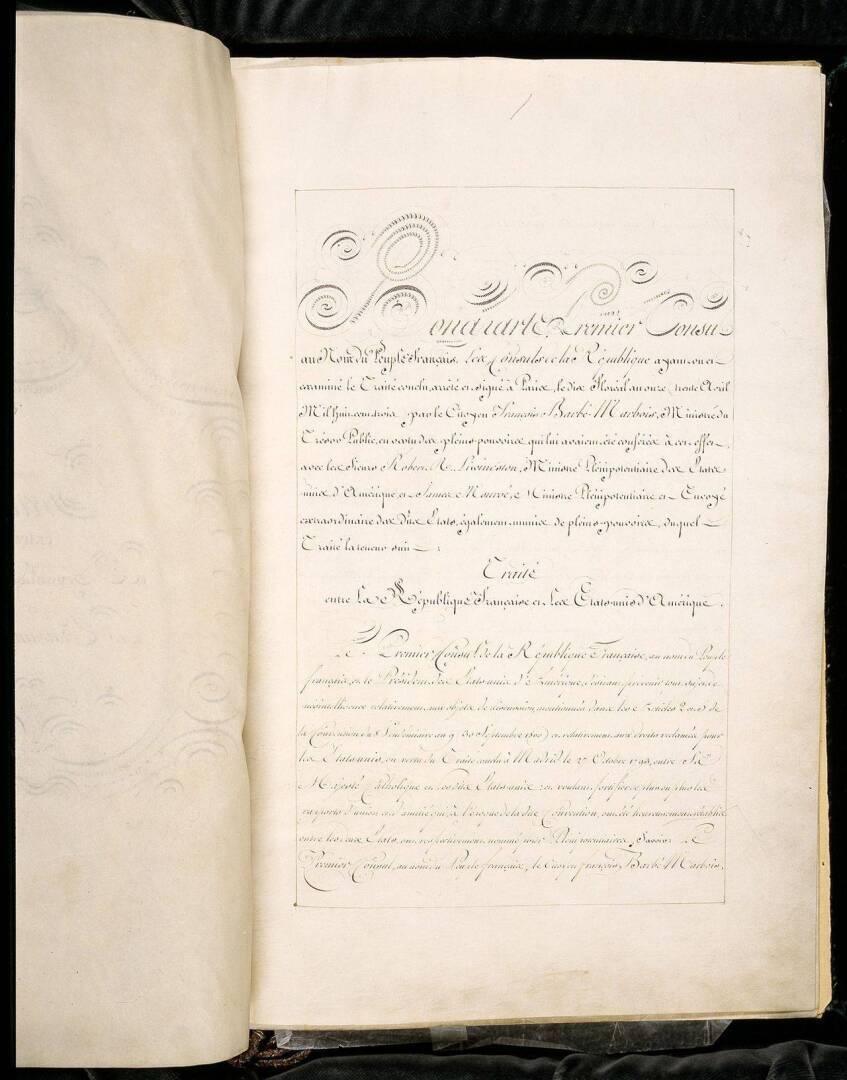 Bonaparte, Premier Consul
au Nom du Peuple français. Les Consuls de la République ayant vu et
examiné le Traité conclu, arrêté et signé à Paris, le dix Floréal an onze (trente Avril
Mil huit cent trois) par le Citoyen François Barbé-Marbois, Ministre du
Trésor Public, en vertu des pleins-pouvoirs qui lui avaient été conférés à cet effet,
avec les Sieurs Robert R. Livingston, Ministre Plénipotentiaire des Etats
unis d'Amérique, et James Monroe, Ministre Plénipotentiaire et Envoyé
extraordinaire des dits Etats, également munis de pleins-pouvoirs, duquel
Traité la teneur suit :
Traité
entre La République Française et Les Etats-unis d'Amérique.
Le Premier Consul de la République Française, au nom du Peuple
français, et le Président des Etats-unis d'Amérique, désirant prévenir tout sujet de
mésintelligence relativement aux objets de discussion mentionnés dans les Articles 2 et 5 de
la Convention du 8 Vendémiaire an 9 (30 Septembre 1800) et relativement aux droits réclamés pour
les Etats-unis, en vertu du Traité conclu à Madrid le 27 Octobre 1795, entre Sa
Majesté Catholique et les dits Etats-unis ; et voulant fortifier de plus en plus les
rapports d'union et d'amitié qui, à l'époque de la dite Convention, ont été heureusement rétablis
entre les deux Etats, ont respectivement nommé pour Plénipotentiaires, Savoir : Le
Premier Consul, au nom du Peuple français, le Citoyen françois Barbé-Marbois,